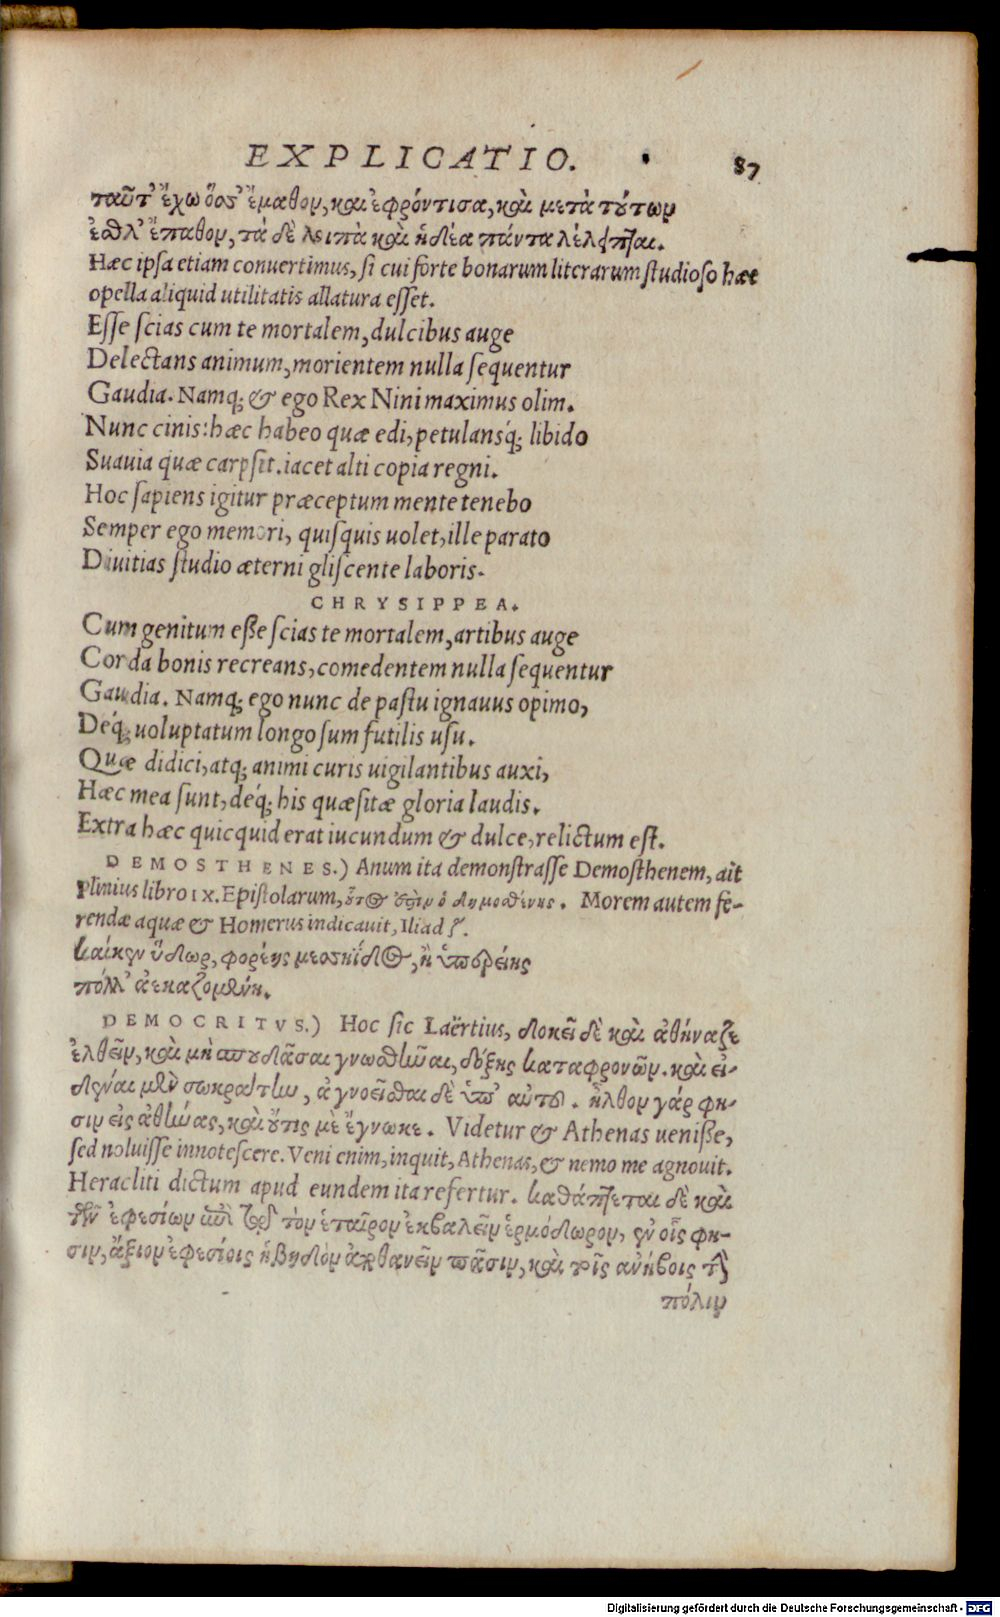 EXPLICATIO. 87
ταῦτ' ἔχω ὅσσ' ἔμαθον, καὶ ἐφρόντισα, καὶ μετὰ τούτων
ἐσθλ' ἔπαθον, τά δὲ λοιπὰ καὶ ἡδέα πάντα λέλειπται.
Hæc ipsa etiam conuertimus, si cui forte bonarum literarum studioso hæc
opella aliquid utilitatis allatura esset.
Esse scias cum te mortalem, dulcibus auge
Delectans animum, morientem nulla sequentur
Gaudia. Namq; & ego Rex Nini maximus olim.
Nunc cinis: hæc habeo quæ edi, petulansq́; libido
Suauia quæ carpsit. iacet alti copia regni.
Hoc sapiens igitur præceptum mente tenebo
Semper ego memori, quisquis uolet, ille parato
Diuitias studio æterni gliscente laboris.
CHRYSIPPEA.
Cum genitum esse scias te mortalem, artibus auge
Corda bonis recreans, comedentem nulla sequentur
Gaudia. Namq; ego nunc de pastu ignauus opimo,
Deq́; uoluptatum longo sum futilis usu.
Quæ didici, atq; animi curis uigilantibus auxi,
Hæc mea sunt, deq́; his quæsitæ gloria laudis.
Extra hæc quicquid erat iucundum & dulce, relictum est.
DEMOSTHENES.) Anum ita demonstrasse Demosthenem, ait
Plinius libro IX. Epistolarum, οὗτος ἐστὶν ὁ δημοσθένης. Morem autem fe-
rendæ aquæ & Homerus indicauit, Iliad ζ.
καίκεν ὕδωρ, φορέης μεσσηΐδος, ἢ ὑπερείης
πόλλ' ἀεκαζομένη.
DEMOCRITVS.) Hoc sic Laërtius, δοκεῖ δὲ καὶ ἀθήναζε
ἐλθεῖν, καὶ μὴ σπουδᾶσαι γνωσθῆναι, δόξης καταφρονῶν. καὶ εἰ-
δέναι μὲν σωκράτην, ἀγνοεῖσθαι δὲ ὑπ' αὐτοῦ. ἦλθον γάρ φη-
σιν εἰς ἀθήνας, καὶ οὔτις μὲ ἔγνωκε. Videtur & Athenas uenisse,
sed noluisse innotescere. Veni enim, inquit, Athenas, & nemo me agnouit.
Heracliti dictum apud eundem ita refertur. καθάπτεται δὲ καὶ
τῶν ἐφεσίων ἐπὶ τῷ τὸν ἑταῖρον ἐκβαλεῖν ἑρμόδωρον, ἐν οἷς φη-
σιν, ἄξιον ἐφεσίοις ἡβηδὸν ἀποθανεῖν πᾶσιν, καὶ τοῖς ἀνήβοις τὴν
πόλιν
Digitalisierung gefördert durch die Deutsche Forschungsgemeinschaft - DFG